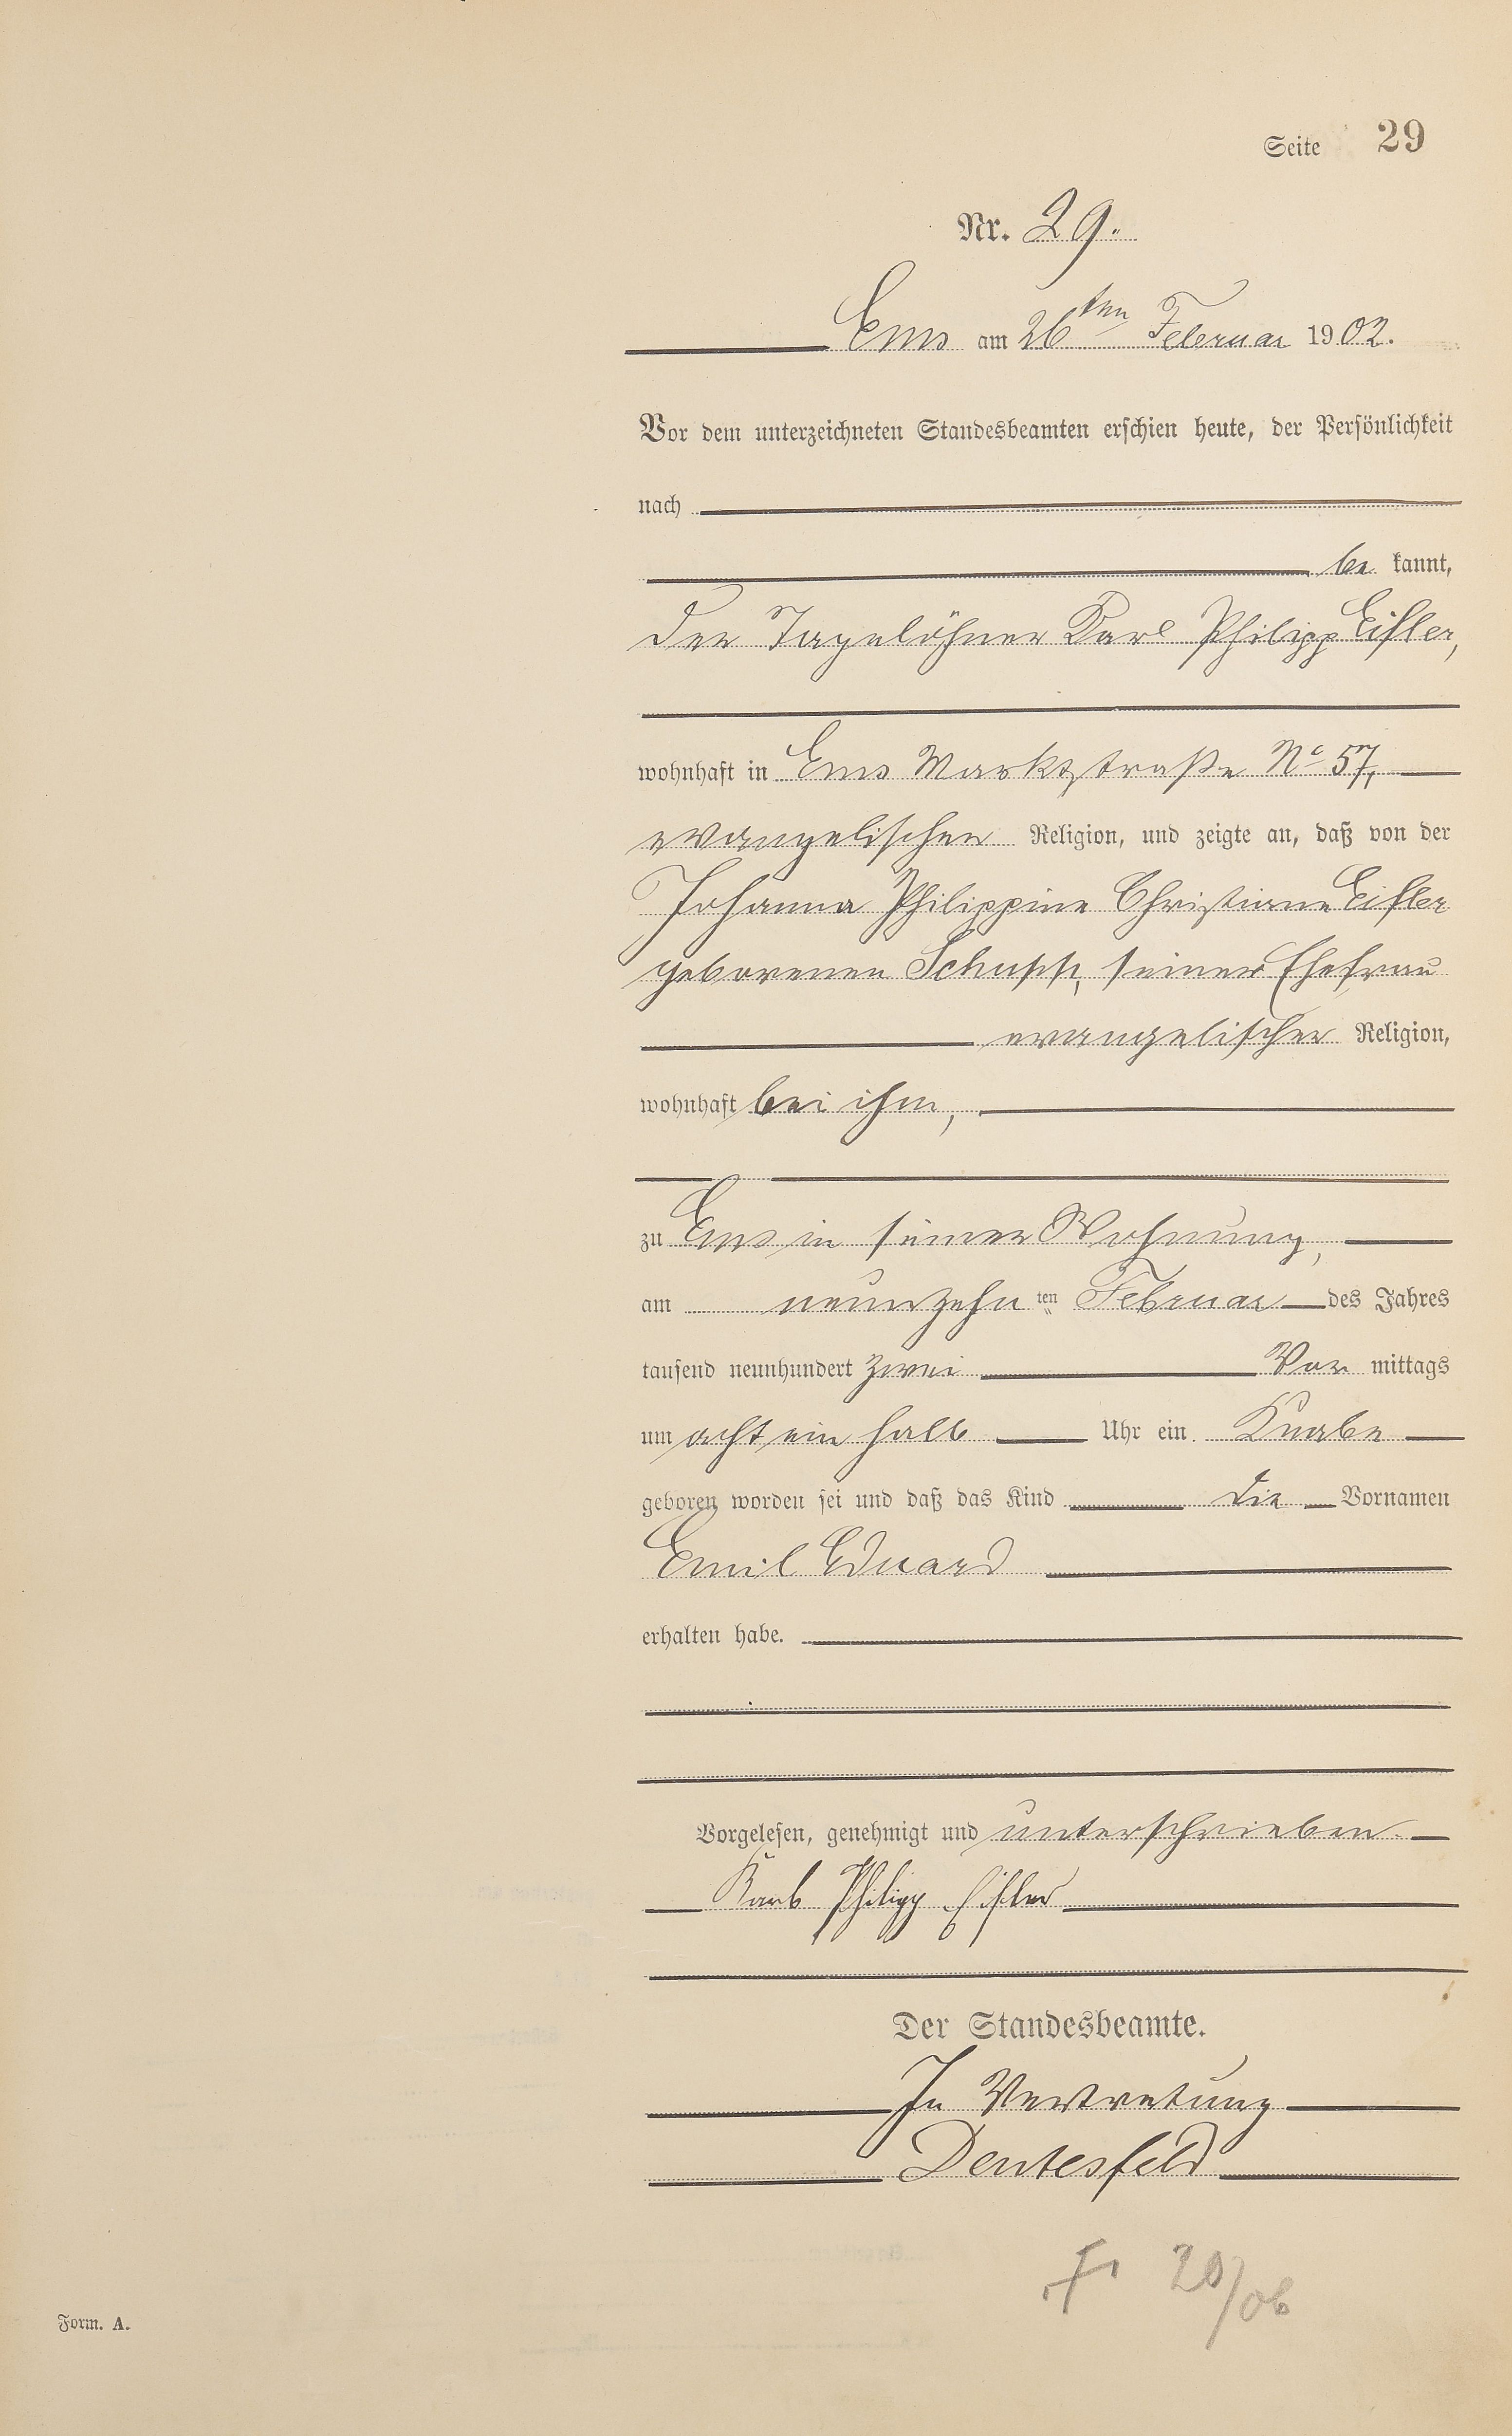 Seite 29
Nr. 29.
Ems am 26ten Februar 1902.
Vor dem unterzeichneten Standesbeamten erschien heute, der Persönlichkeit
nach
be kannt,
der Tagelöhner Karl Philipp Eifler,
wohnhaft in Ems Marktstraße No 57,
evangelischer Religion, und zeigte an, daß von der
Johanna Philippine Christiane Eifler
geborenen Schupp, seiner Ehefrau
evangelischer Religion,
wohnhaft bei ihm,
zu Ems in seiner Wohnung,
am neunzehn ten Februar des Jahres
tausend neunhundert zwei Vor mittags
um acht ein halb Uhr ein Knabe
geboren worden sei und daß das Kind die Vornamen
Emil Eduard
erhalten habe.
Vorgelesen, genehmigt und unterschrieben.
Karl Philipp Eifler
Der Standesbeamte.
In Vertretung
Dentesfeld
20/06
Form. A.